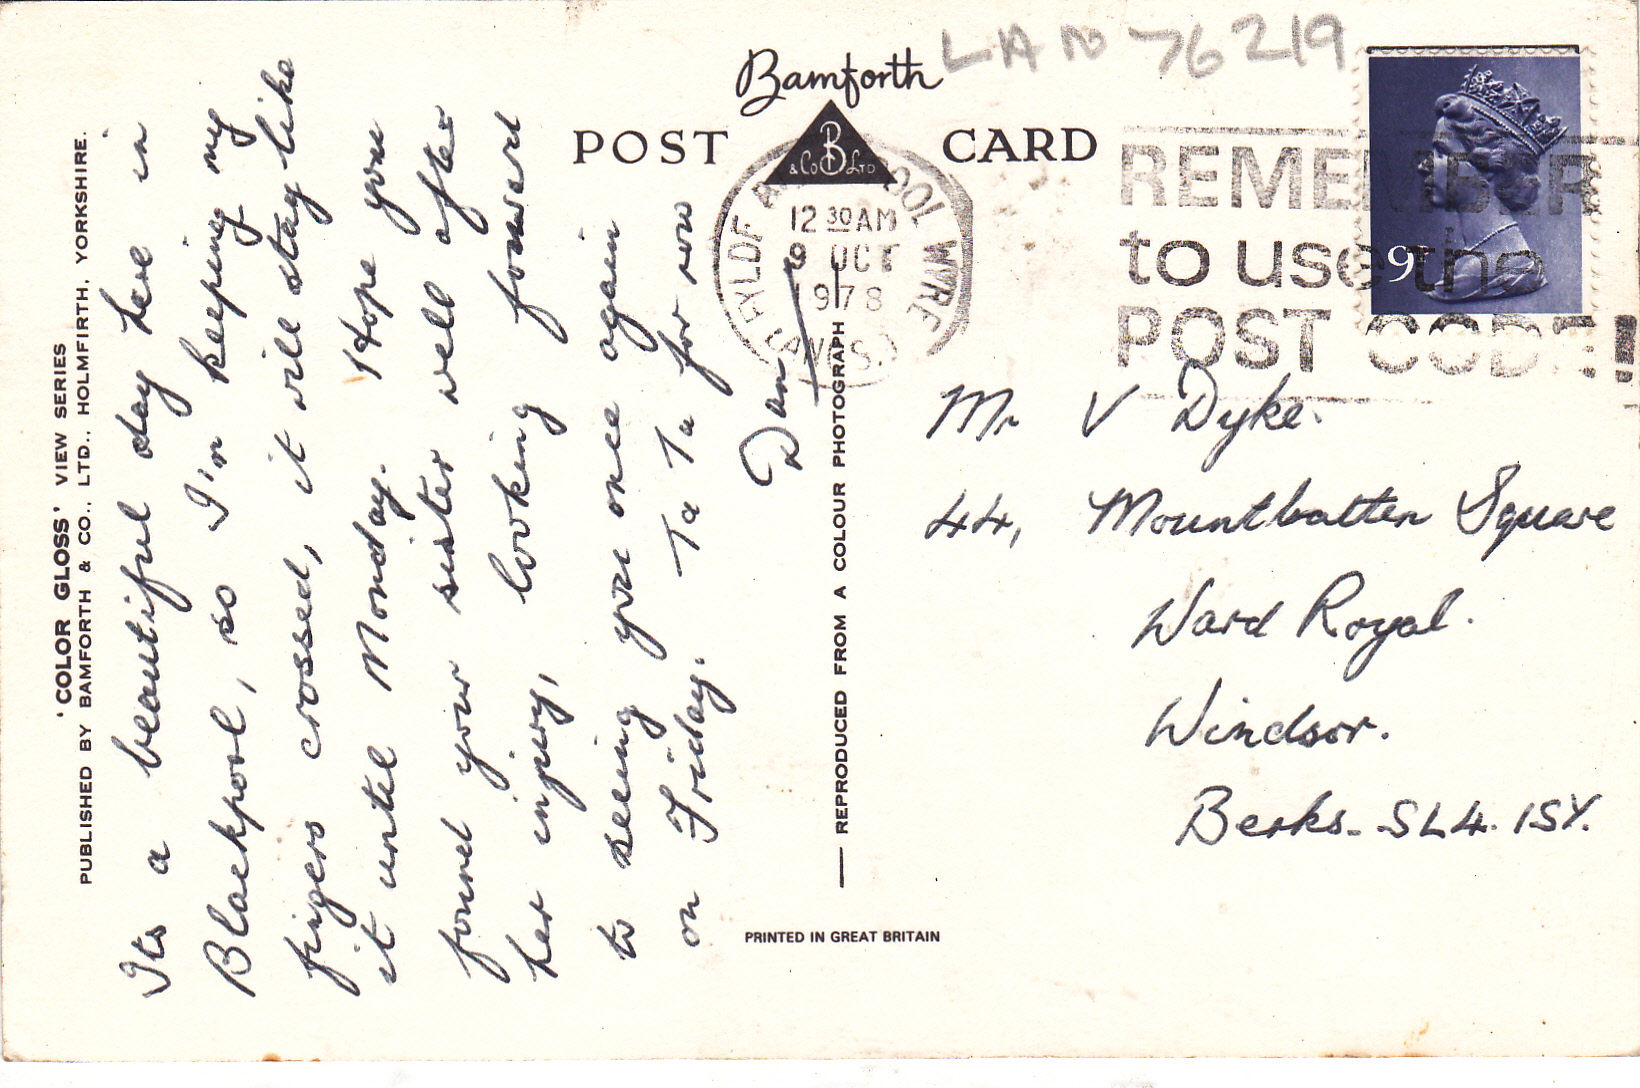 'COLOR GLOSS' VIEW SERIES
PUBLISHED BY BAMFORTH & CO., LTD., HOLMFIRTH, YORKSHIRE.
Its a beautiful day here in
Blackpool, so I'm keeping my
fingers crossed, it will stay like
it until Monday. Hope you
found your sister well after
her injury, looking foward
to seeing you once again
on Friday. Ta Ta for now
Dan
Bamforth
POST CARD
B
& Co LTD
LAN 76219
FYLDE BLACKPOOL WYRE
12 30 AM
OCT
1978
LANCS.
REMEMBER
to use the
POST CODE!
9P
REPRODUCED FROM A COLOUR PHOTOGRAPH
Mr V Dyke.
44, Mountbatten Square
Ward Royal.
Windsor.
Berks. SL4. 1SY.
PRINTED IN GREAT BRITAIN